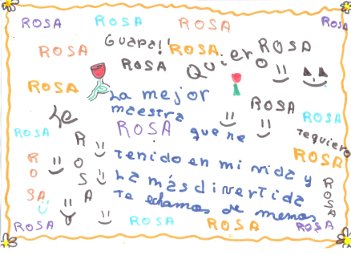 ROSA ROSA ROSA ROSA
GUAPA!!
ROSA ROSA. QUIERO ROSA
ROSA
ROSA
La mejor
maestra
ROSA
Te
ROSA que he
ROSA
tequiero
tenido en mi vida y
ROSA
La más divertida
ROSA
ROSA
ROSA
Te echamos de menos
ROSA ROSA ROSA ROSA